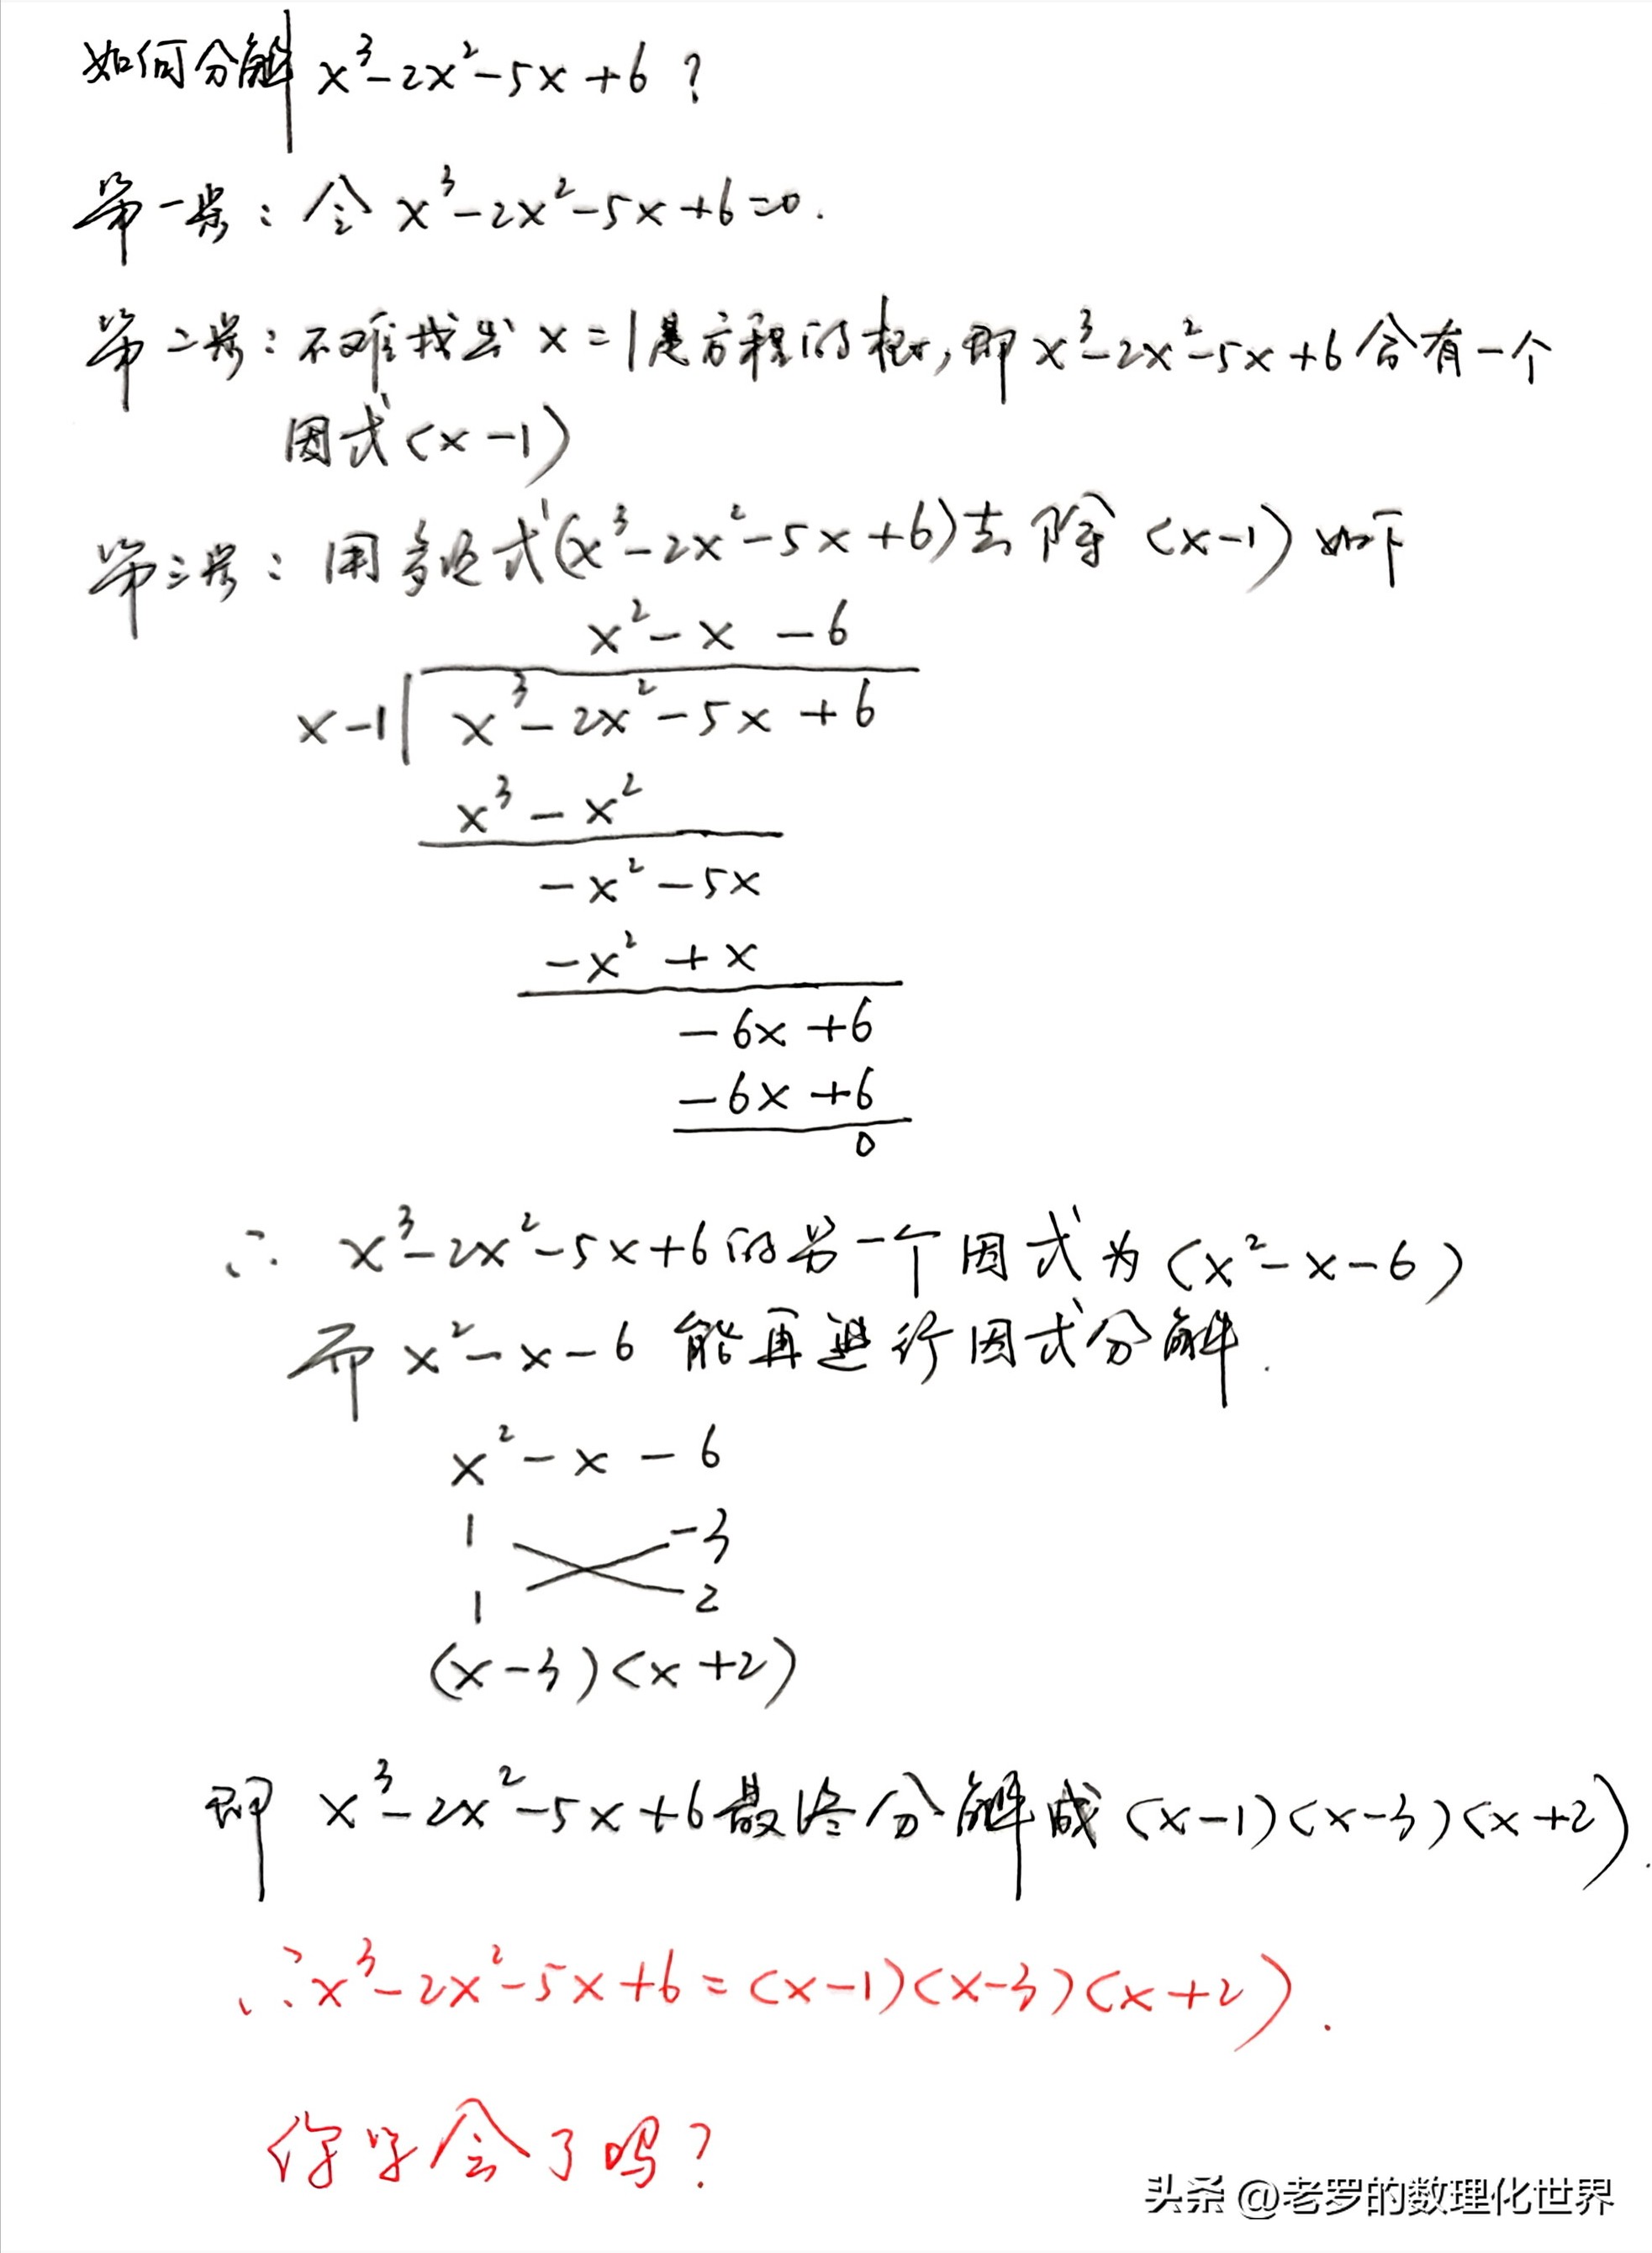 如何分解 x³-2x²-5x+6?
第一步:令 x³-2x²-5x+6=0.
第二步:不难找出 x=1是方程的根,即 x³-2x²-5x+6 含有一个
因式(x-1)
第三步:用多项式(x³-2x²-5x+6)去除 (x-1) 如下
x²-x-6
x-1 x³-2x²-5x+6
x³-x²
-x²-5x
-x²+x
-6x+6
-6x+6
0
∴ x³-2x²-5x+6的另一个因式为(x²-x-6)
而 x²-x-6 能再进行因式分解.
x²-x-6
1 -3
1 2
(x-3)(x+2)
即 x³-2x²-5x+6最终分解成(x-1)(x-3)(x+2).
∴x³-2x²-5x+6=(x-1)(x-3)(x+2).
你学会了吗?
头条 @老罗的数理化世界